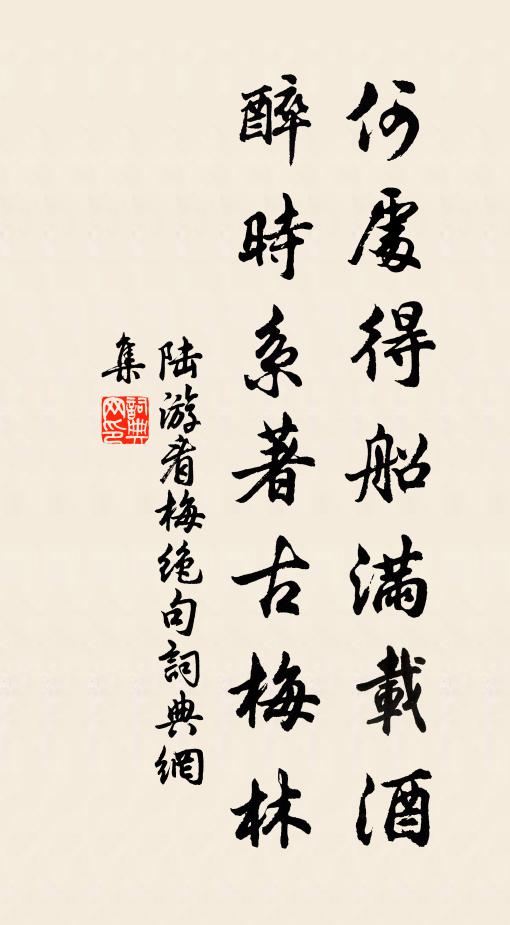 何處得船滿載酒
醉時系著古梅林
陆游看梅绝句詞典網
集
詞典
网印